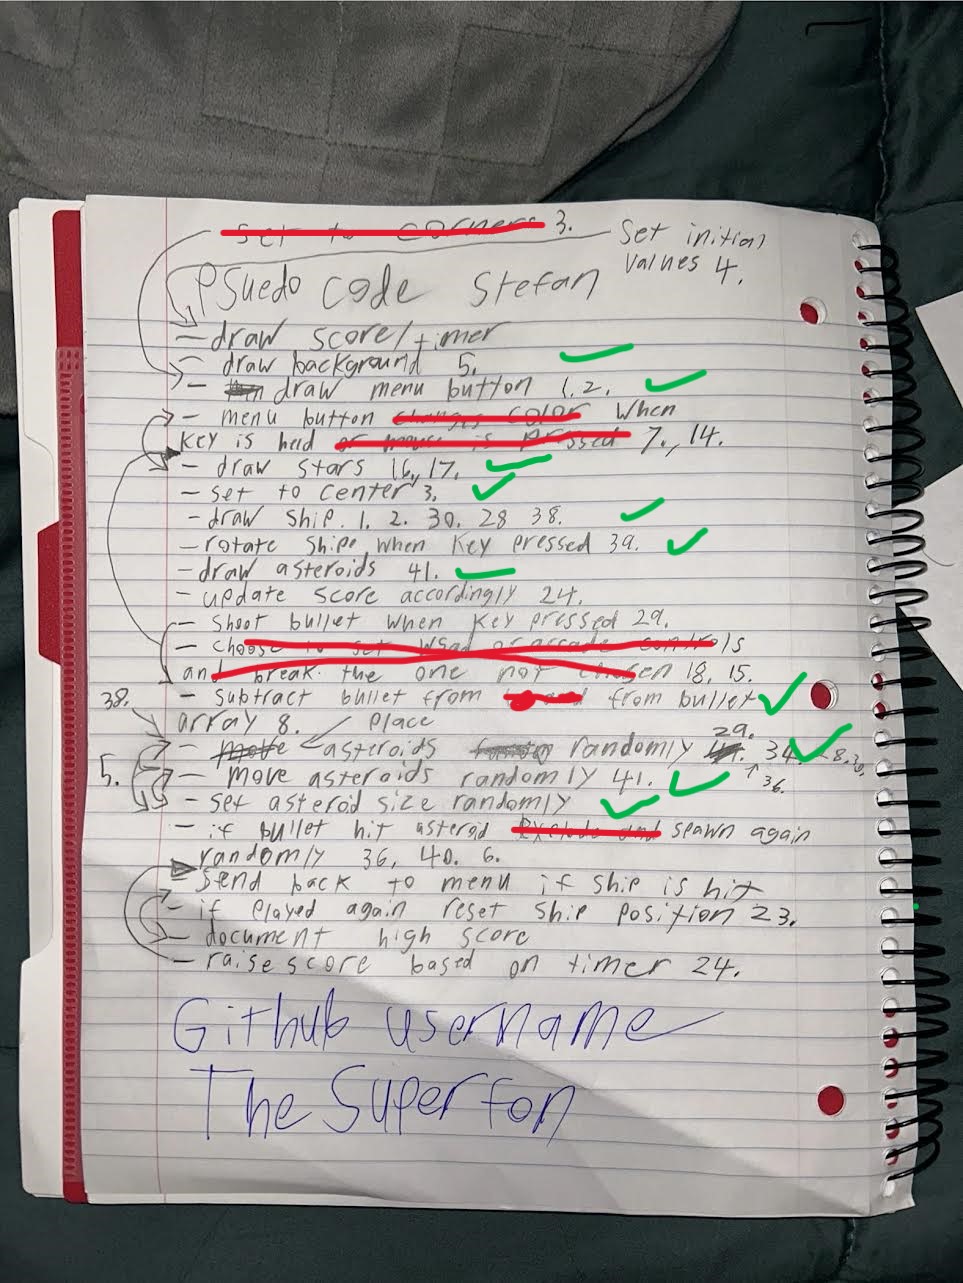 set to corners 3.
Set initial
values 4.
Psuedo code Stefan
- draw score/timer
- draw background 5.
- draw menu button 1. 2.
- menu button changes color when
key is held or mouse is pressed 7., 14.
- draw stars 16, 17.
- set to center 3.
- draw ship. 1. 2. 30. 28 38.
- rotate shipe when key pressed 39.
- draw asteroids 41.
- update score accordingly 24.
- shoot bullet when key pressed 29.
- choose to set wsad or arcade controls
and break the one not chosen 18, 15.
- subtract bullet from from bullet
38. array 8. place
- move asteroids randomly 29. 34. 36.
5. - move asteroids randomly 41.
- set asteroid size randomly
- if bullet hit asteroid spawn again
randomly 36, 40. 6.
send back to menu if ship is hit
- if played again reset ship position 23.
- document high score
- raise score based on timer 24.
Github username
The Superfon